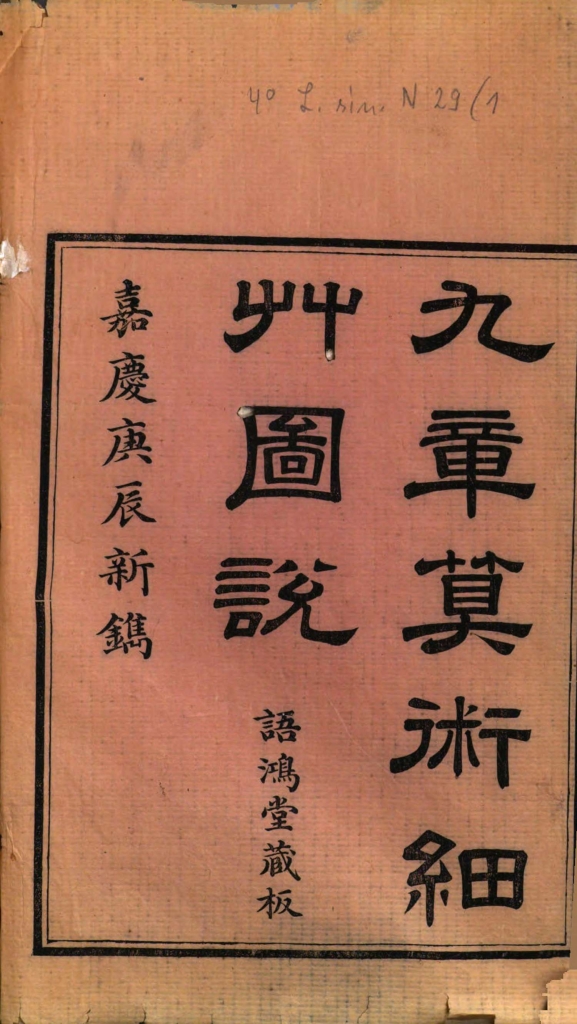 4° L. sin. N 29(1
九章算術細
艸圖說
語鴻堂藏板
嘉慶庚辰新鐫